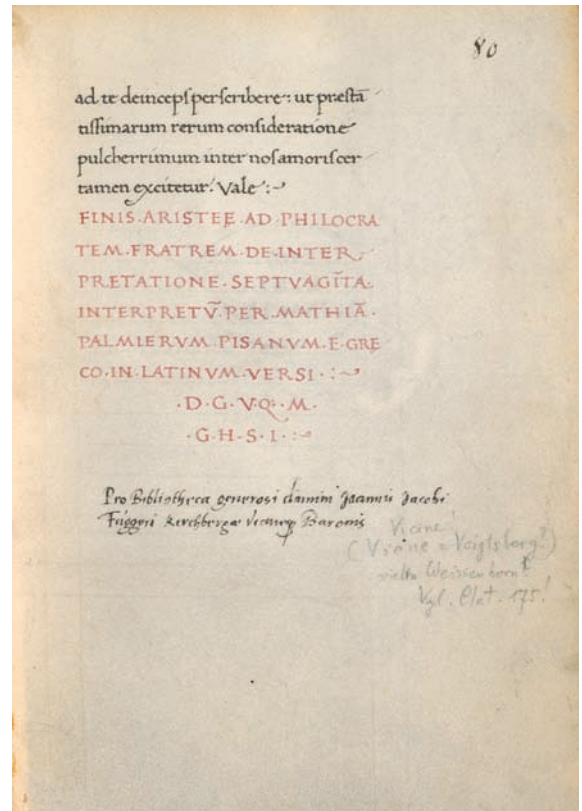 80
ad te deinceps perscribere: ut præstā
tissimarum rerum consideratione
pulcherrimum inter nos amoris cer
tamen excitetur. Vale :~
FINIS·ARISTEE·AD·PHILOCRA
TEM·FRATREM·DE·INTER
PRETATIONE·SEPTVAGĪTA·
INTERPRETV̄·PER·MATHIĀ·
PALMIERVM·PISANVM·E·GRE
CO·IN·LATINVM·VERSI·:~
·D·G·V·Q·M·
·G·H·S·I·:~
Pro Bibliotheca generosi domini Joannis Jacobi
Fuggeri Kirchbergæ Baronis
Vicine!
(Vicine = Voigtsberg?)
Weissenhorn?
Vgl. Clat. 175!